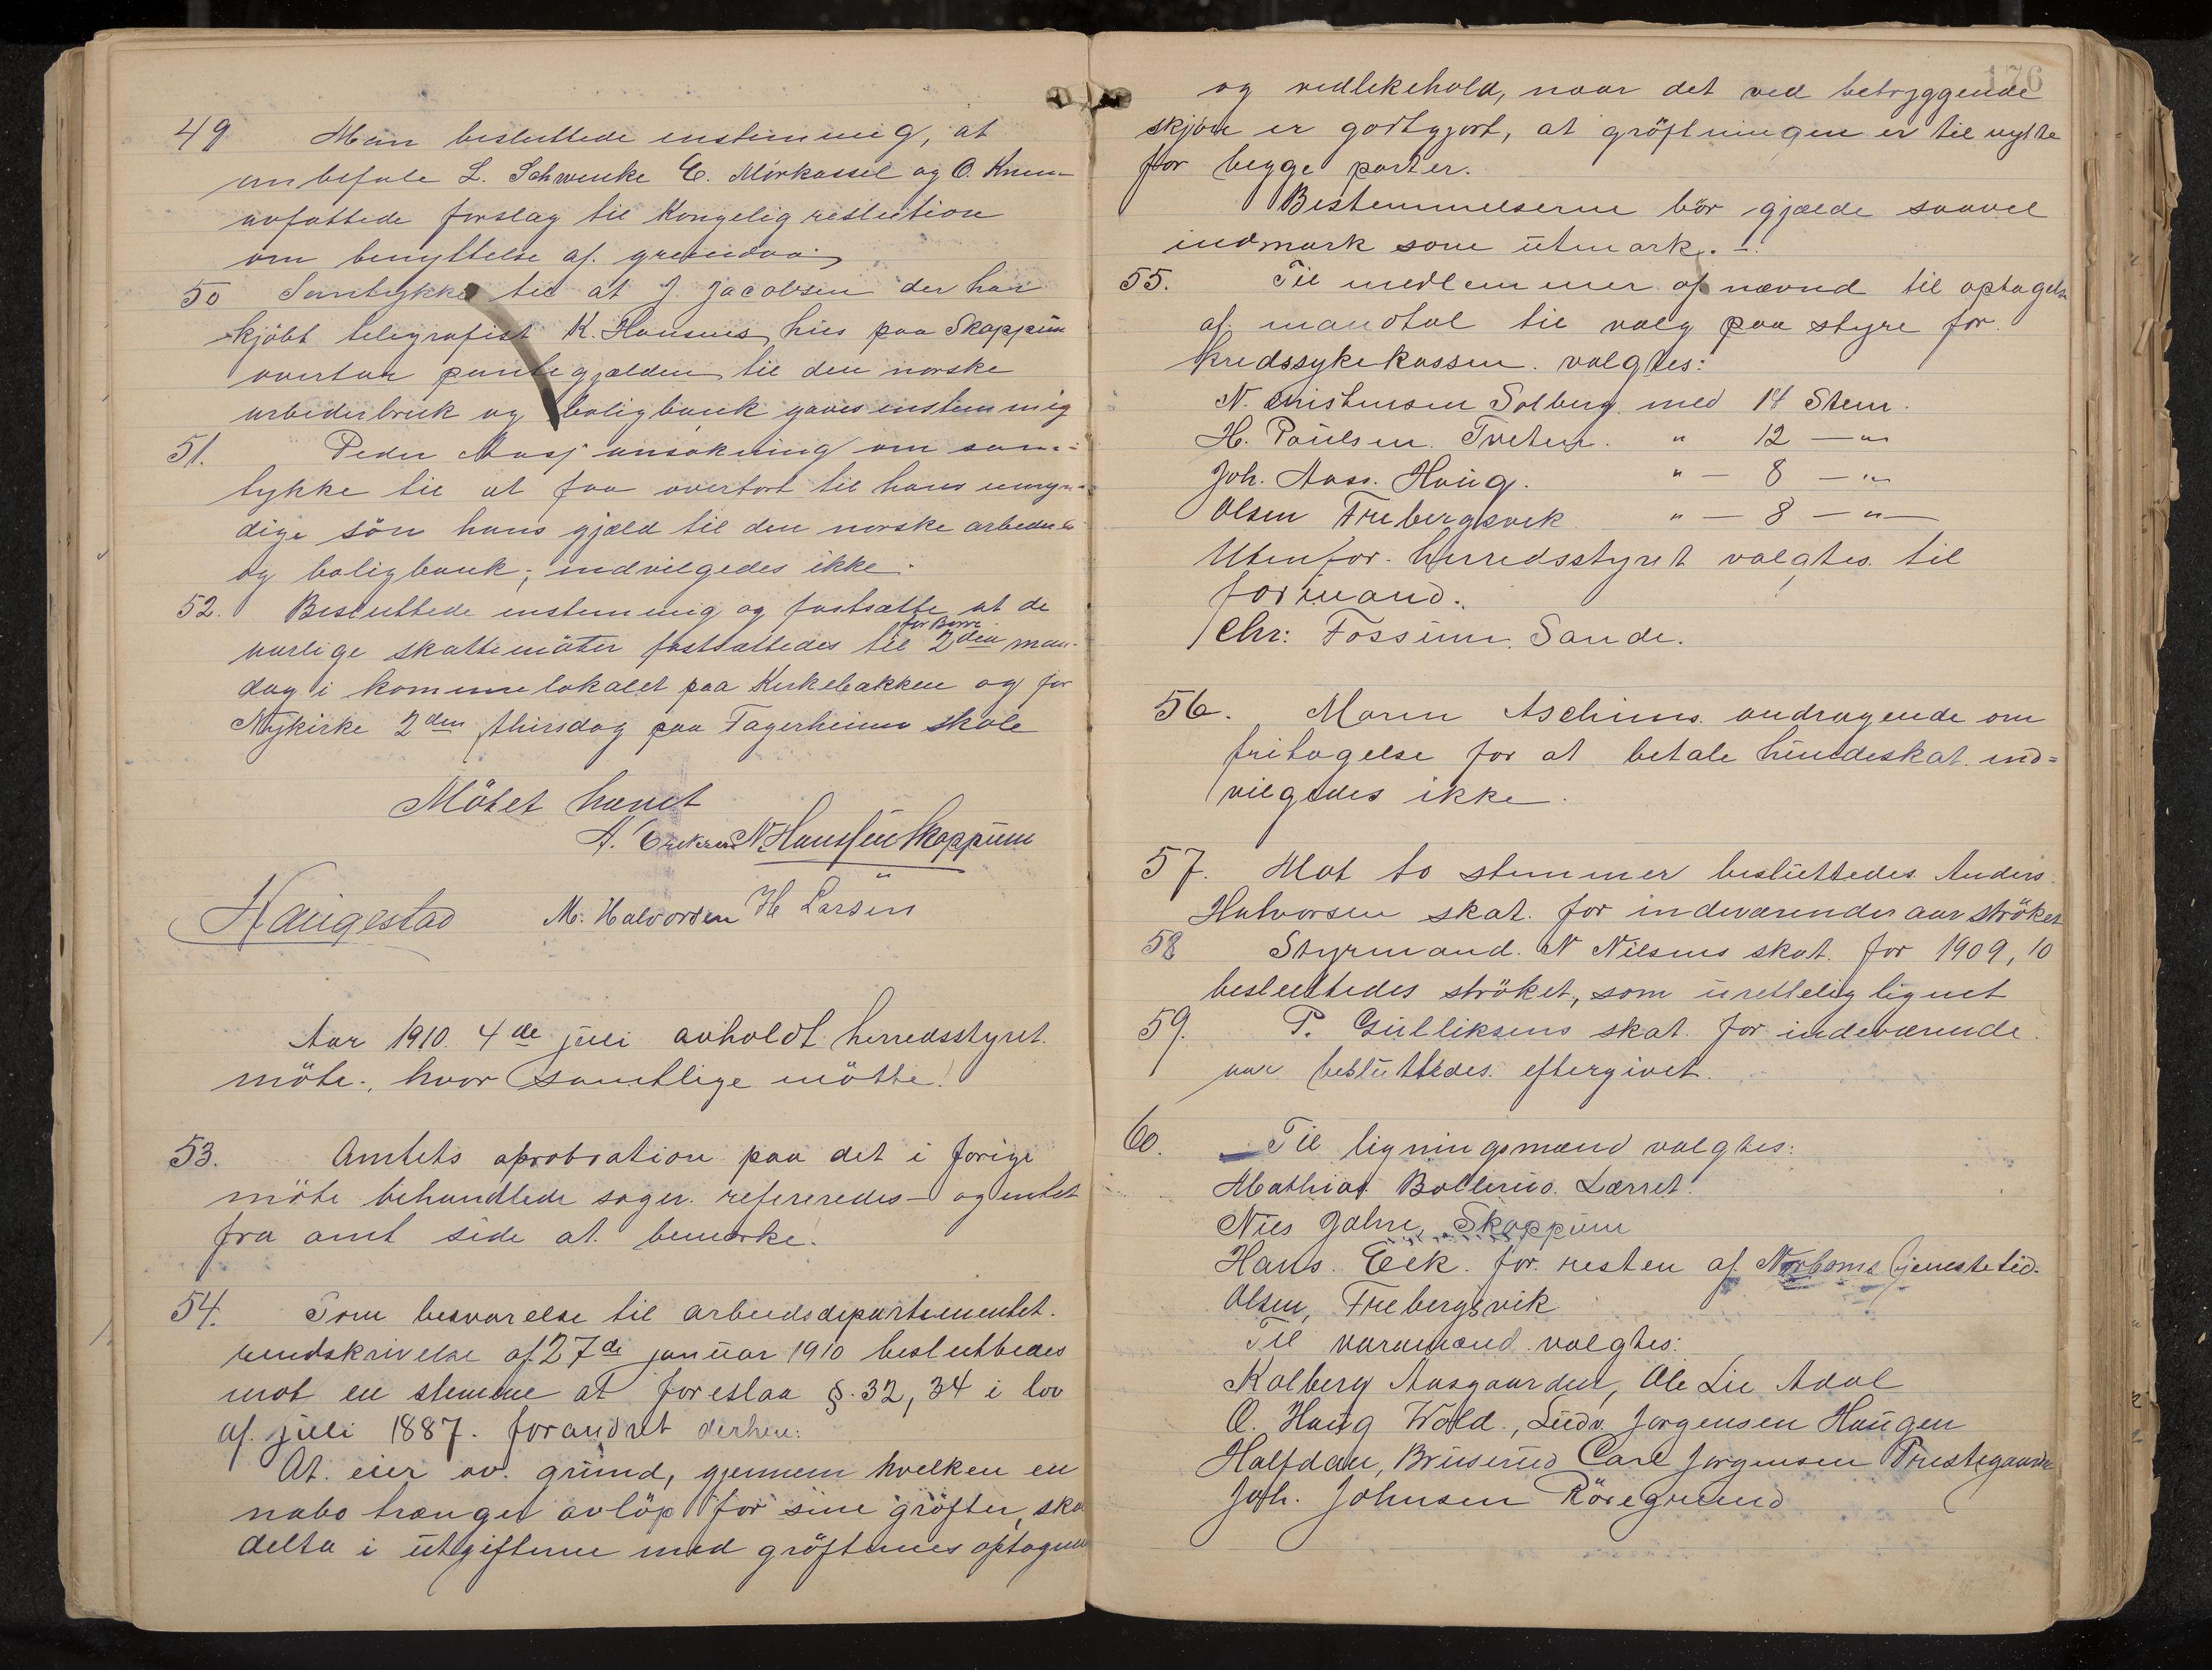 49 Man besluttede enstemmig, at
anbefale L. Schwenke C. Mörkassel og O.
avfattede forslag til Kongelig resolution
om benyttelse af.
50 Samtykke til at J. Jacobsen der har
kjöbt telegrafist K. Hansens hus paa Skoppum
overtar pantegjælden til den norske
arbeiderbruk og boligbank gaves enstemmig
51. Peder Aas ansökning om sam-
tykke til at faa overfört til hans umyn-
dige sön hans gjæld til den norske arbeider
og boligbank; indvilgedes ikke.
52. Besluttede enstemmig og fastsatte at de
for Borre
aarlige skattemöter fastsattedes til 2den man-
dag i kommunelokalet paa Kirkebakken og for
Nykirke 2den thirsdag paa Fagerheim skole
Mötet hævet
A. Eriksen N. Hanssen Skoppum
Haugestad M. Halvorsen H Larsen
Aar 1910. 4de juli avholdt herredsstyret
möte, hvor samtlige mötte.
53. Amtets aprobation paa det i forige
möte behandlede sager refereredes og intet
fra amt side at bemerke.
54. Som besvarelse til arbeidsdepartementet
rundskrivelse af 27de januar 1910 besluttedes
mot en stemme at foreslaa §. 32, 34 i lov
af. juli 1887. forandret derhen:
At. eier av. grund, gjennem hvilken en
nabo trænger avlöp for sine gröfter, ska
delta i utgifterne med gröfternes optagn
176
og vedlikehold, naar det ved betryggende
skjön er godtgjort, at gröftningen er til nytte
for begge parter.
Bestemmelserne bör gjælde saavel
indmark som utmark. -
55. Til medlemmer af nævnd til optagelse
af. mandtal til valg paa styre for
kredssykekassen. valgtes:
N. Christensen Solberg. med 14 Stem.
H. Paulsen. Tveten. " 12 — "
Joh. Aass. Haug. " — 8 — "
Olsen Frebergsvik " — 8 — " —
Utenfor. herredsstyret valgtes. til
formand.
Chr: Fossum. Sande.
56. Maren Aschims. andragende om
fritagelse for at betale hundeskat. ind=
vilgedes ikke.
57. Mot to stemmer besluttedes Anders
Halvorsen skat. for indeværende aar ströket
58 Styrmand. N Nilsens skat. for 1909, 10
besluttedes ströket, som urettelig lignet
59. P. Gulliksens skat for indeværende
aar besluttedes. eftergivet.
60. Til ligningsmænd valgtes:
Mathias Bollerud. Lærret.
Nils Jahre, Skoppum
Hans. Eek. for resten af Norboms tjenestetid.
Olsen, Frebergsvik
Til varamænd valgtes:
Kalberg Aasgaarden, Ole Lie Adal
O. Haug Wold., Ludv. Jorgensen Haugen
Halfdan, Bruserud Carl Jorgensen Prestegaard
Joh. Johnsen Röregrund